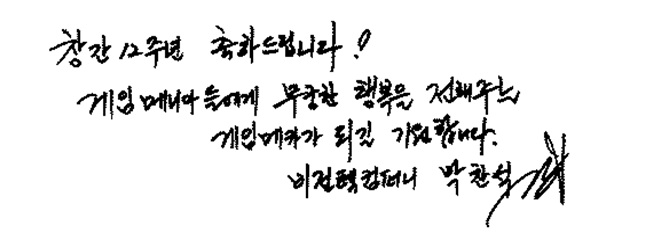 창간 12주년 축하드립니다!
게임 메니아들에게 무궁한 행복을 전해주는
게임메카가 되길 기원합니다.
비전텍컴퍼니 박찬석